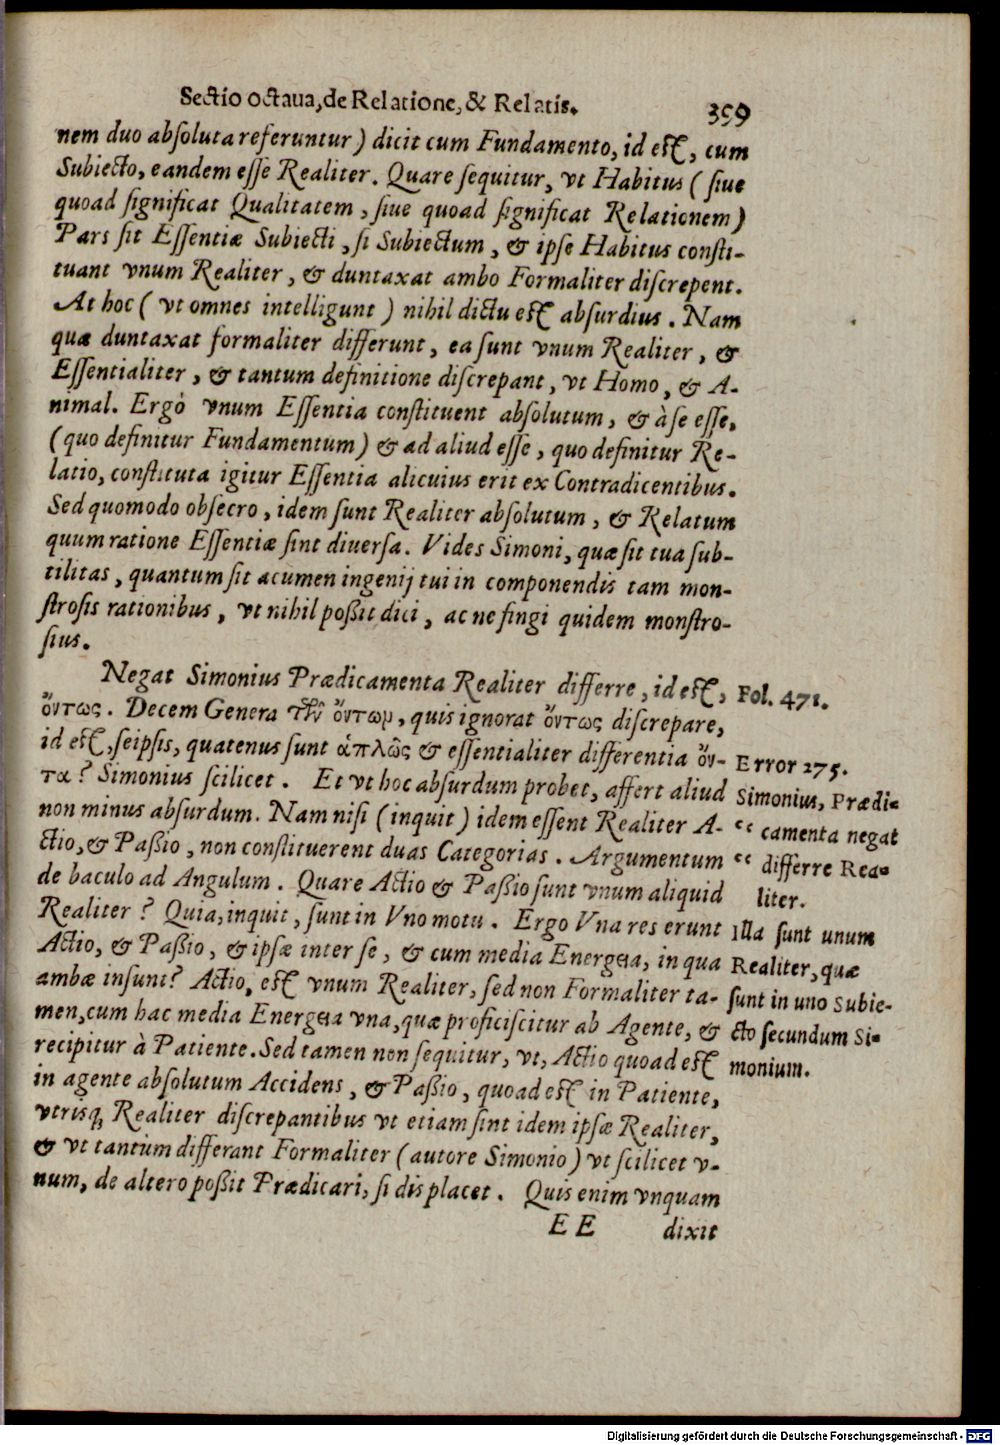 Sectio octaua, de Relatione, & Relatis. 359
nem duo absoluta referuntur) dicit cum Fundamento, id est, cum
Subiecto, eandem esse Realiter. Quare sequitur, vt Habitus (siue
quoad significat Qualitatem, siue quoad significat Relationem)
Pars sit Essentiæ Subiecti, si Subiectum, & ipse Habitus consti-
tuant vnum Realiter, & duntaxat ambo Formaliter discrepent.
At hoc (vt omnes intelligunt) nihil dictu est absurdius. Nam
quæ duntaxat formaliter differunt, ea sunt vnum Realiter, &
Essentialiter, & tantum definitione discrepant, vt Homo, & A-
nimal. Ergò vnum Essentia constituent absolutum, & à se esse,
(quo definitur Fundamentum) & ad aliud esse, quo definitur Re-
latio, constituta igitur Essentia alicuius erit ex Contradicentibus.
Sed quomodo obsecro, idem sunt Realiter absolutum, & Relatum
quum ratione Essentiæ sint diuersa. Vides Simoni, quæ sit tua sub-
tilitas, quantum sit acumen ingenij tui in componendis tam mon-
strosis rationibus, vt nihil poßit dici, ac ne fingi quidem monstro-
sius.
Negat Simonius Prædicamenta Realiter differre, id est,
ὄντως. Decem Genera τῶν ὄντωμ, quis ignorat ὄντως discrepare,
id est, seipsis, quatenus sunt ἁπλῶς & essentialiter differentia ὄν-
τα? Simonius scilicet. Et vt hoc absurdum probet, affert aliud
non minus absurdum. Nam nisi (inquit) idem essent Realiter A-
ctio, & Paßio, non constituerent duas Categorias. Argumentum
de baculo ad Angulum. Quare Actio & Paßio sunt vnum aliquid
Realiter? Quia, inquit, sunt in Vno motu. Ergo Vna res erunt
Actio, & Paßio, & ipsæ inter se, & cum media Energeia, in qua
ambæ insunt? Actio, est vnum Realiter, sed non Formaliter ta-
men, cum hac media Energeia vna, quæ proficiscitur ab Agente, &
recipitur à Patiente. Sed tamen non sequitur, vt, Actio quoad est
in agente absolutum Accidens, & Paßio, quoad est in Patiente,
vtrisq; Realiter discrepantibus vt etiam sint idem ipsæ Realiter,
& vt tantum differant Formaliter (autore Simonio) vt scilicet v-
num, de altero poßit Prædicari, si dis placet. Quis enim vnquam
E E dixit
Fol. 471.
Error 275.
Simonius, Prædi-
“ camenta negat
“ differre Rea-
liter.
Illa sunt unum
Realiter, quæ
sunt in uno Subie-
cto secundum Si-
monium.
Digitalisierung gefördert durch die Deutsche Forschungsgemeinschaft - DFG